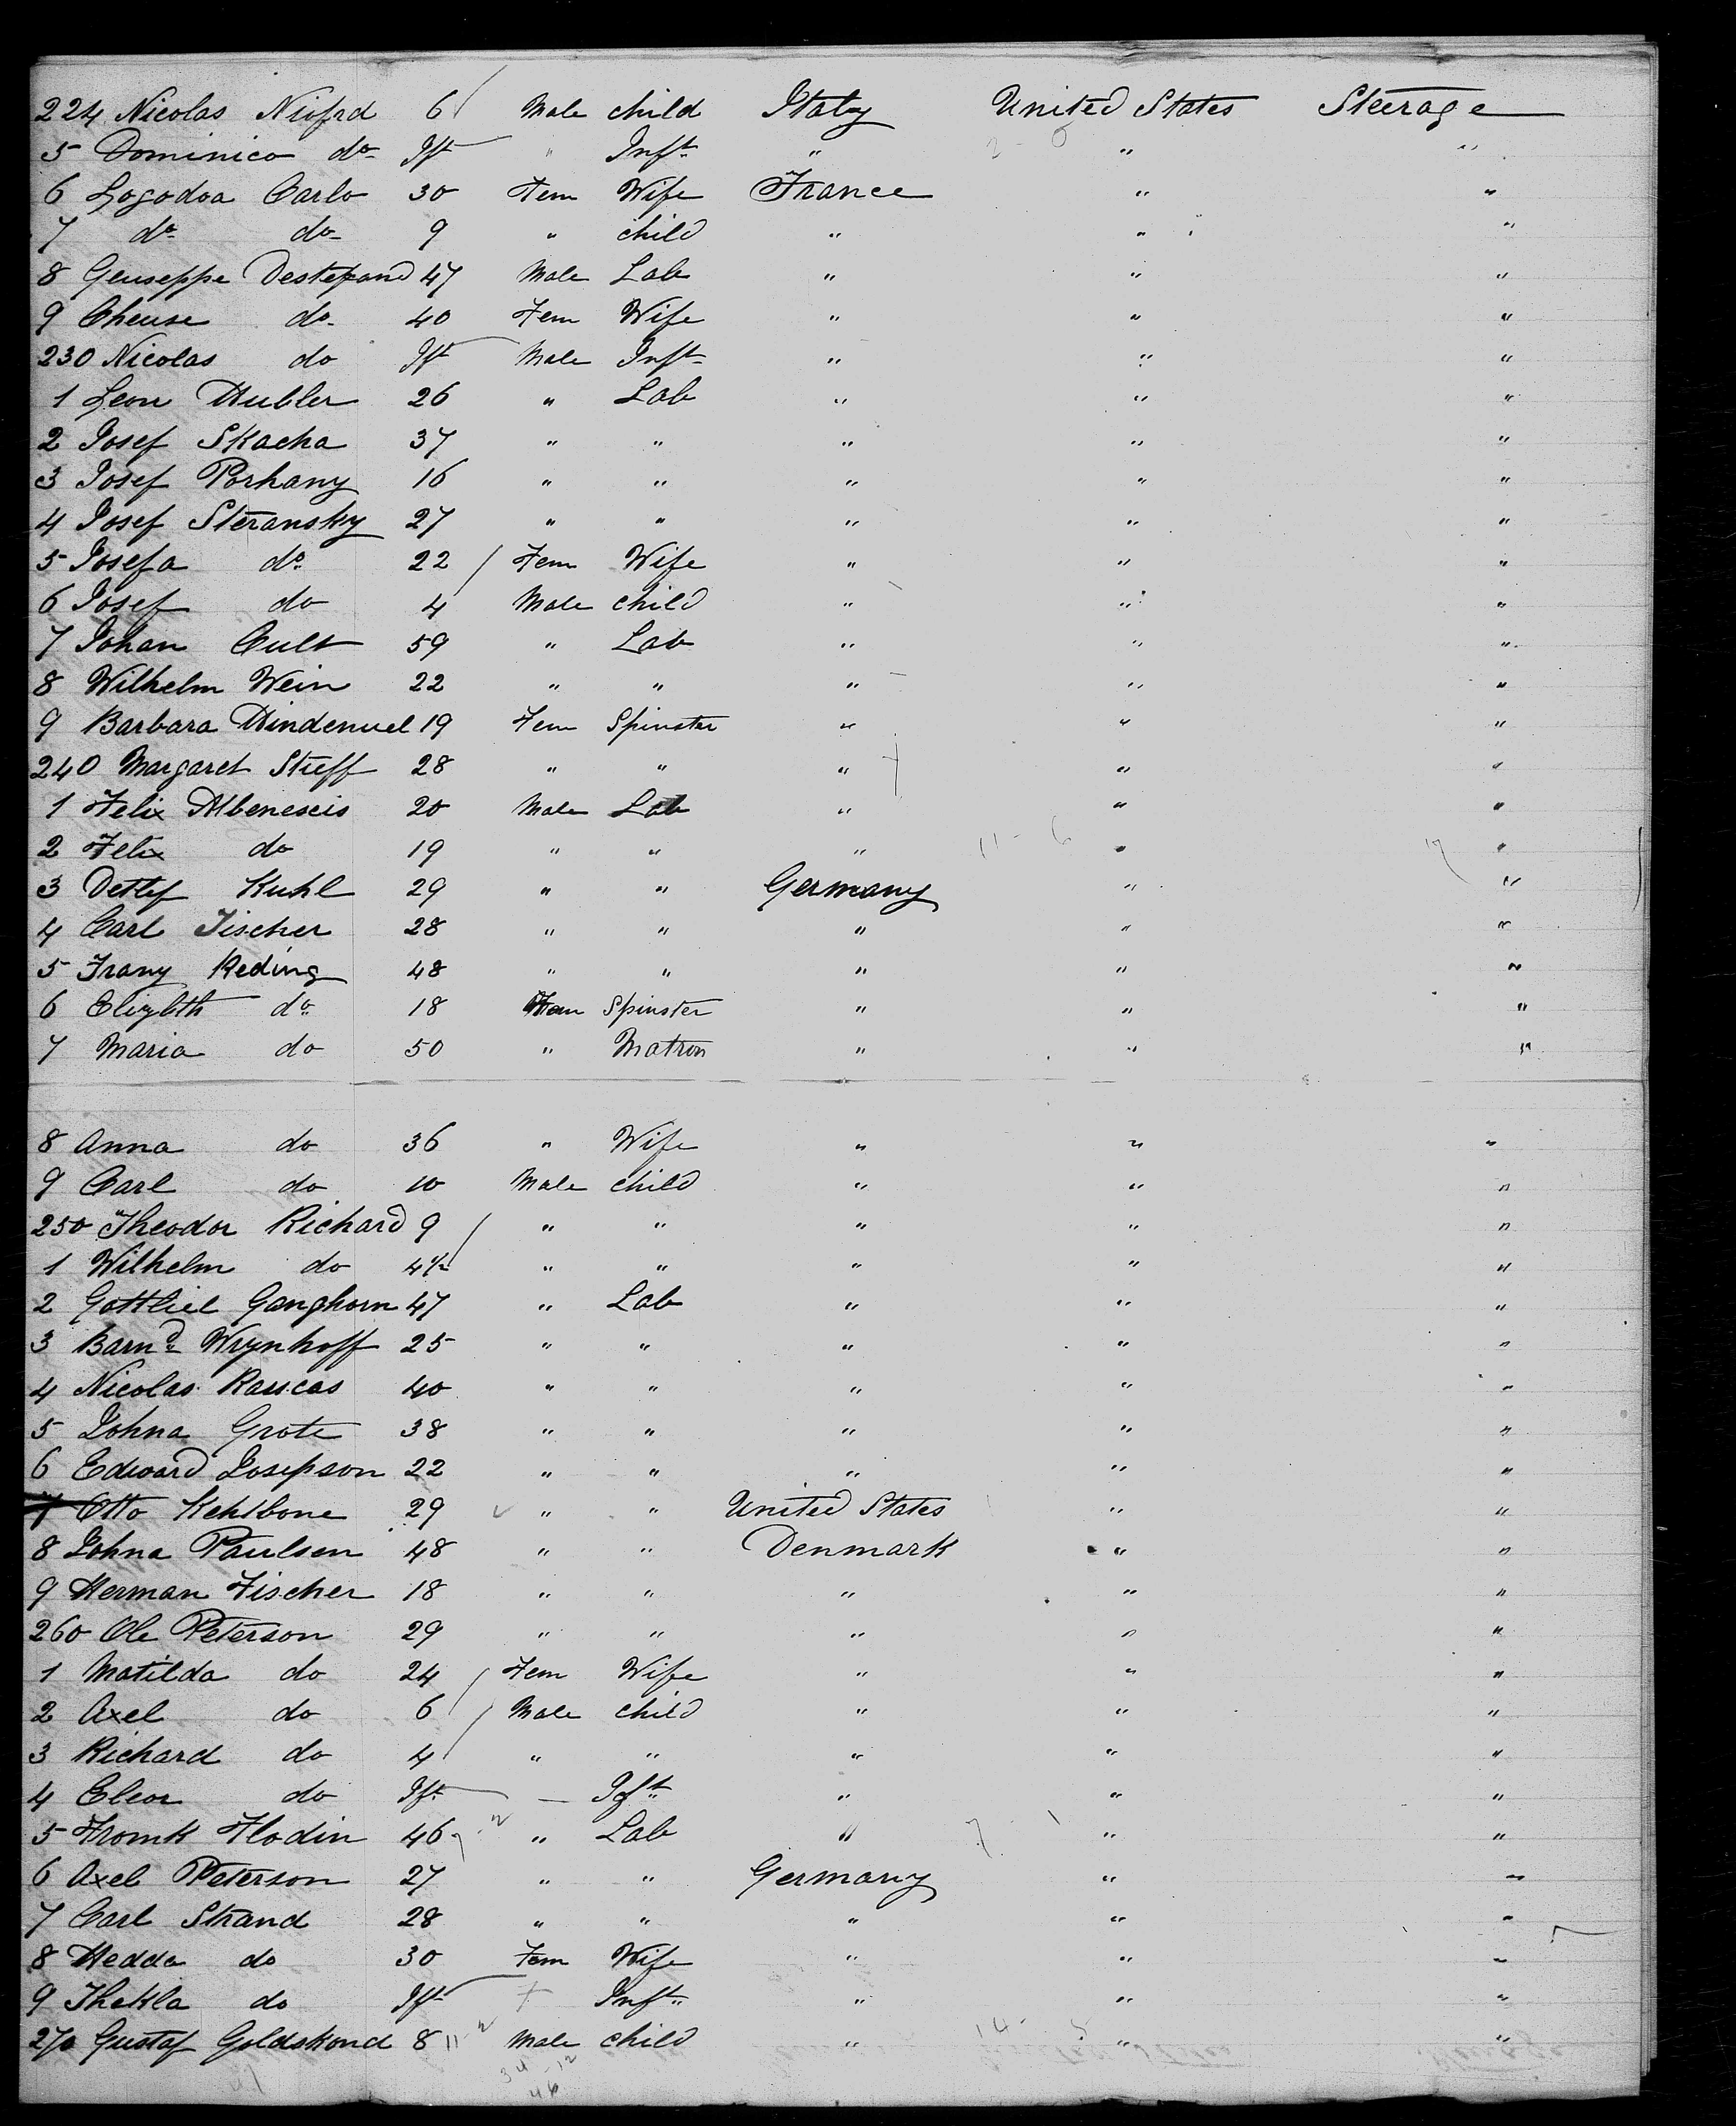 224 Nicolas Niofrd 6 Male child Italy United States Steerage
5 Dominico do Ift " Inft " " "
6 Logodoa Carlo 30 Fem Wife France " "
7 do do 9 " child " " "
8 Geuseppe Destefano 47 Male Lab " " "
9 Cheuse do 40 Fem Wife " " "
230 Nicolas do Ift Male Inft " " "
1 Leon Hubler 26 " Lab " " "
2 Josef Skacha 37 " " " " "
3 Josef Porhany 16 " " " " "
4 Josef Steransky 27 " " " " "
5 Josefa do 22 Fem Wife " " "
6 Josef do 4 Male child " " "
7 Johan Cult 59 " Lab " " "
8 Wilhelm Wein 22 " " " " "
9 Barbara Hindenuel 19 Fem Spinster " " "
240 Margaret Steff 28 " " " " "
1 Felix Albeneseis 20 Male Lab " " "
2 Felix do 19 " " " 11-6 " "
3 Detlef Kuhl 29 " " Germany " "
4 Carl Fischer 28 " " " " "
5 Frany Reding 48 " " " " "
6 Elizbth do 18 Fem Spinster " " "
7 Maria do 50 " Matron " " "
8 Anna do 36 " Wife " " "
9 Carl do 10 Male child " " "
250 Theodor Richard 9 " " " " "
1 Wilhelm do 4½ " " " " "
2 Gottliel Ganghorn 47 " Lab " " "
3 Barnd Wrynhoff 25 " " " " "
4 Nicolas Raucas 40 " " " " "
5 Johna Grote 38 " " " " "
6 Edward Josepson 22 " " " " "
7 Otto Kehlbone 29 " " United States " "
8 Johna Paulsen 48 " " Denmark " "
9 Herman Fischer 18 " " " " "
260 Ole Peterson 29 " " " " "
1 Matilda do 24 Fem Wife " " "
2 Axel do 6 Male child " " "
3 Richard do 4 " " " " "
4 Eleor do Ift — Ift " " "
5 Fromk Flodin 46 " Lab " 7-1 " "
6 Axel Peterson 27 " " Germany " "
7 Carl Strand 28 " " " " "
8 Hedda do 30 Fem Wife " " "
9 Thekla do Ift Inft " " "
270 Gustaf Goldskond 8 Male child " 14-5 " "
34-12
46